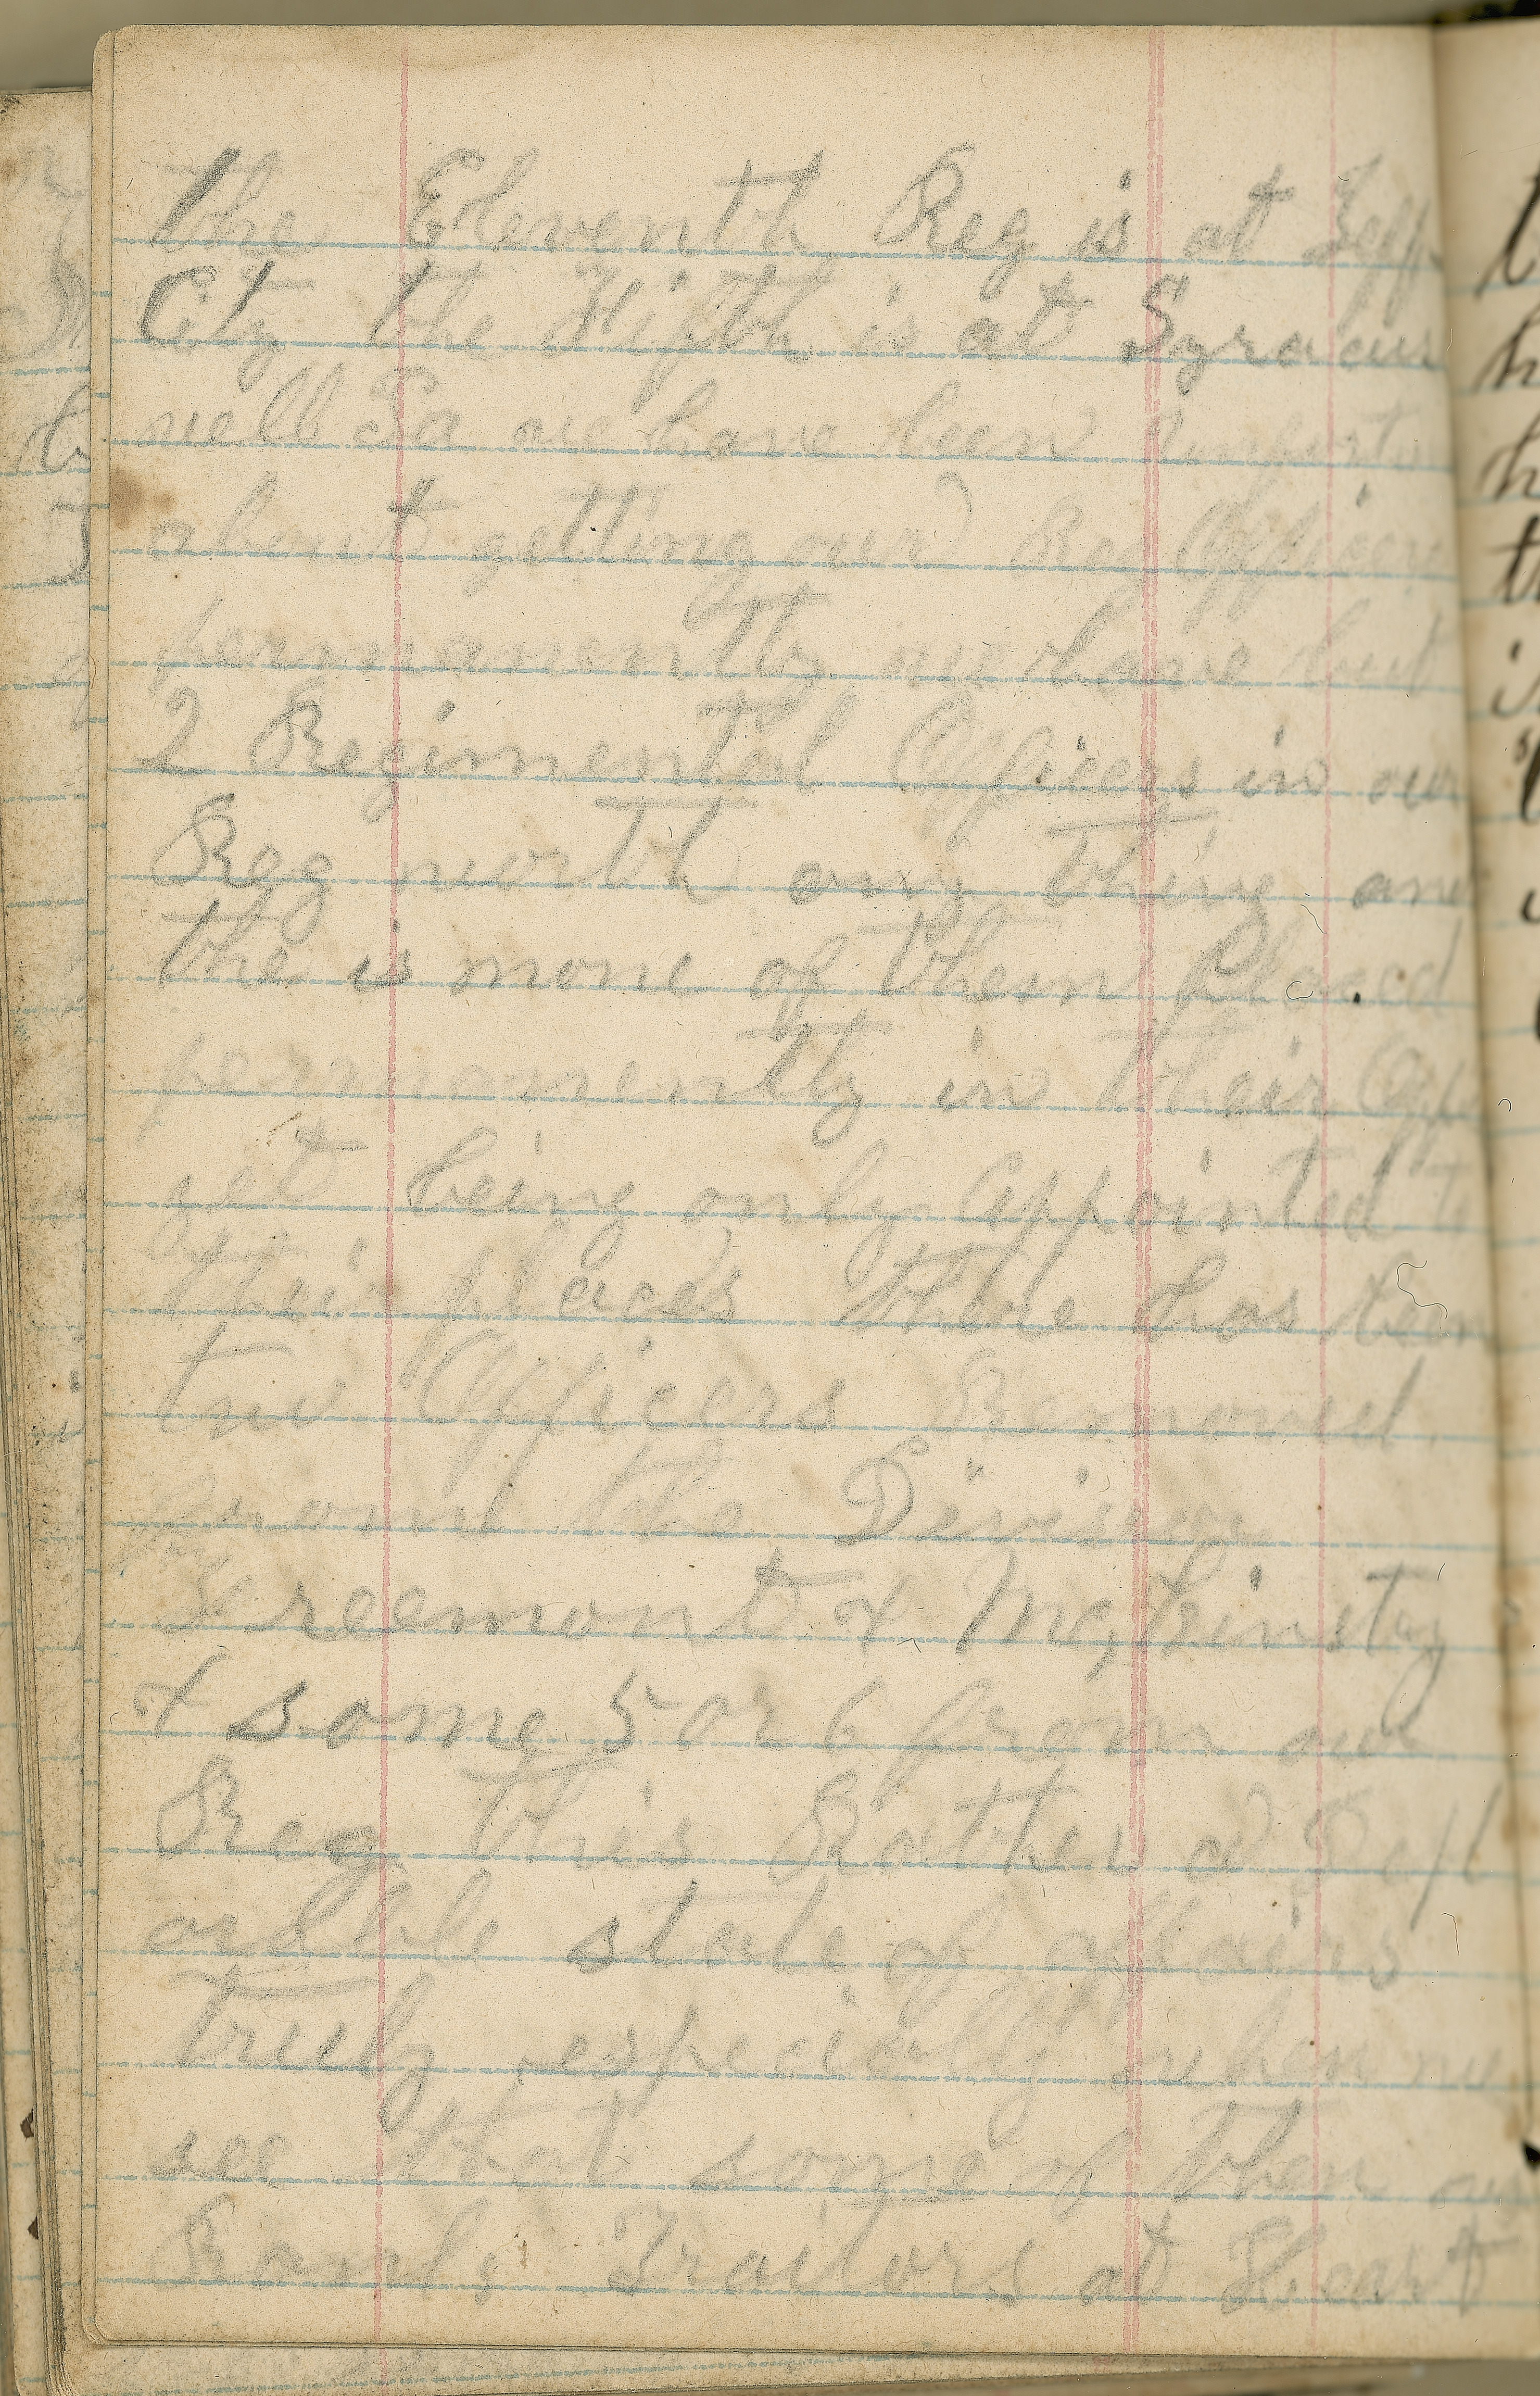 The Eleventh Reg is at Jeff
City the Fifth is at Syracus
well So we have been
about getting our Reg Officers
permanently we have but
2 Regimental Officers in our
Reg worth any thing and
the is none of them Placed
permanently in their Off
yet being only Appointed to
their places there has been
two Officers Removed
from the Division
Freemont & McKinsty
& some 5 or 6 from our
Reg this Rather a Depl
orable state of affairs
truly especially when we
see that some of them are
Rank Traitors at Heart